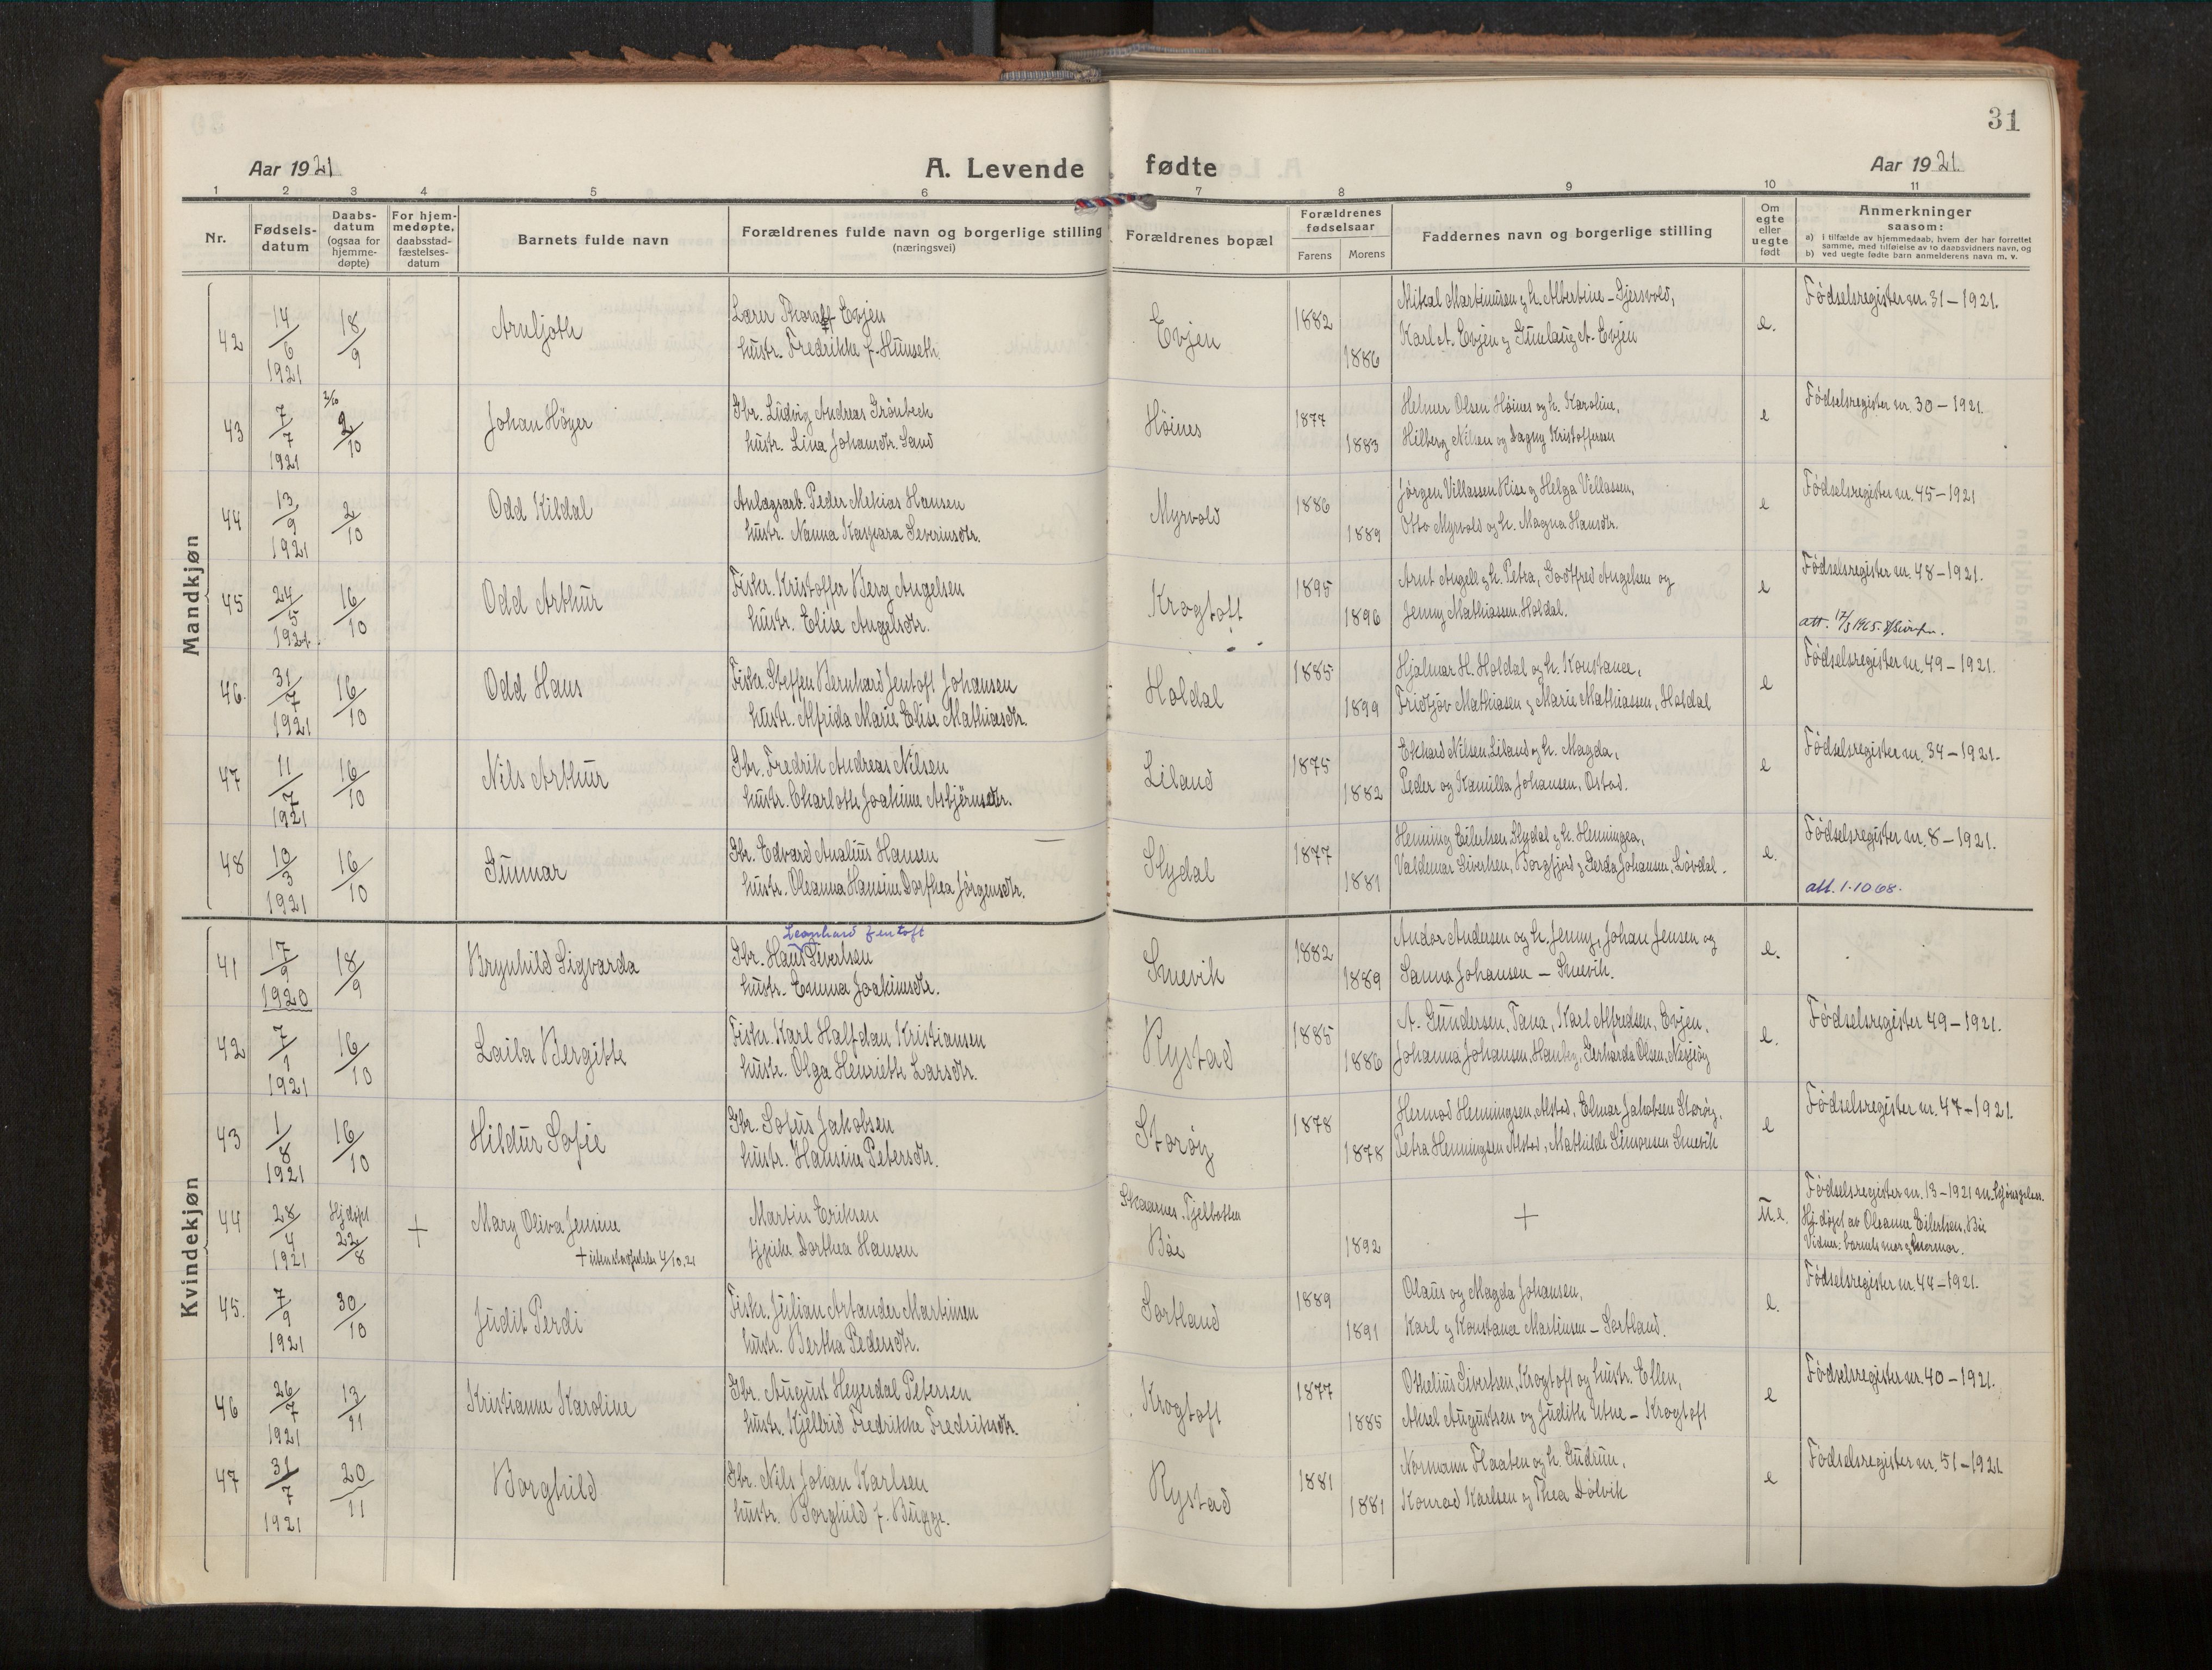 31
Aar 1921
A. Levende fødte
Aar 1921.
1 2 3 4 5 6 7 8 9 10 11
Nr.
Fødsels-
datum
Daabs-
datum
(ogsaa for
hjemme-
døpte)
For hjem-
medøpte,
daabsstad-
fæstelses-
datum
Barnets fulde navn
Forældrenes fulde navn og borgerlige stilling
(næringsvei)
Forældrenes bopæl
Forældrenes
fødselsaar
Farens Morens
Faddernes navn og borgerlige stilling
Om
egte
eller
uegte
født
Anmerkninger
saasom:
a) i tilfælde av hjemmedaab, hvem der har forrettet
samme, med tilføielse av to daabsvidners navn, og
b) ved uegte fødte barn anmelderens navn m. v.
Mandkjøn
42 14/6 1921 18/9 Arnljoth
Lærer Thoralf Evjen
hustr. Fredrikke f. Hunseth.
Evjen 1882 1886
Mikal Martinusen og h. Albertine - Gjersvold,
Karl A. Evjen og Gunlaug A. Evjen
e.
Fødselsregister nr. 31 - 1921.
43 7/7 1921 2/10 2/10 Johan Høyer
Gbr. Ludvig Andreas Grønbech
hustr. Lina Johansdtr. Sand
Høines 1877 1883
Helmer Olsen Høines og h. Karoline,
Hilberg Nilsen og Dagny Kristoffersen
e
Fødselsregister nr. 30 - 1921.
44 13/9 1921 2/10 Odd Kildal
Anlægsarb. Peder Mekias Hansen
hustr. Nanna Kaspara Severinsdtr.
Myrvold 1886 1889
Jørgen Villassen Kise og Helga Villassen,
Otto Myrvold og h. Magna Hansdtr.
e
Fødselsregister nr. 45 - 1921
45 24/5 1921. 16/10 Odd Arthur
Fiskr. Kristoffer Berg Angelsen
hustr. Elise Angelsdtr.
Krogtoft 1895 1896
Arnt Angell og h. Petra, Godtfred Angelsen og
Jenny Mathiassen. Holdal.
e
Fødselsregister nr. 48 - 1921.
att. 17/3 1965.
46. 31/7 1921 16/10 Odd Hans
Fiskr. Steffen Bernhard Jentoft Johansen
hustr. Alfrida Marie Elise Mathiasdtr.
Holdal 1885 1899
Hjalmar H. Holdal og h. Konstance,
Fridtjov Mathiasen og Marie Mathiassen, Holdal
e
Fødselsregister nr. 49 - 1921.
47 11/7 1921 16/10 Nils Arthur
Gbr. Fredrik Andreas Nilsen
hustr. Charlotte Joakime Asbjørnsdtr.
Liland 1875 1882
Ekhard Nilsen Liland og h. Magda,
Peder og Kamilla Johansen, Østad.
e
Fødselsregister nr. 34 - 1921.
48 10/3 1921 16/10 Gunnar
Gbr. Edvard Analius Hansen
hustr. Oleanna Hansine Dorthea Jørgensdtr.
Slydal 1877 1881
Henning Eilertsen Slydal og h. Henningea,
Valdemar Sivertsen, Borgfjord og Gerda Johansen Løvdal.
e.
Fødselsregister nr. 8 - 1921.
att. 1.10 68.
Kvindekjøn
41 17/9 1920 18/9 Brynhild Sigvarda
Leonhard Jentoft
Gbr. Hans Sivertsen
hustr. Emma Joakimsdtr.
Smevik 1882 1889
Andor Andersen og h. Jenny, Johan Jensen og
Sanna Johansen - Smevik.
e.
42 7/9 1921 16/10 Laila Bergitte
Fiskr. Karl Halfdan Kristiansen
hustr. Olga Henriette Larsdtr.
Rystad 1885 1886
A. Gundersen, Tana, Karl Alfredsen, Evjen,
Johanna Johansen, Gerharda Olsen,
e.
Fødselsregister 49 - 1921.
43 1/8 1921 16/10 Hildur Sofie
Gbr. Sofus Jakobsen
hustr. Hansine Petersdtr.
Storøy 1878 1878
Hermod Henningsen, Alstad, Elmar Jakobsen Storøy,
Petra Henningsen Alstad, Mathilde Simonsen Smevik
e
Fødselsregister nr. 47 - 1921.
44 28/4 1921 Hjdøpt 22/8 + Mary Oliva Jensine
4/10.21
Martin Eriksen
tjpike Dorthea Hansen
Skaarnes, Tjelbotten
Bøe 1892
+
u.e.
Fødselsregister nr. 13 - 1921
Hj. døpt av Oleanna Eilertsen, Bø
Vidner: barnets mor og mormor.
45. 7/9 1921 30/10 Judit Perdi
Fiskr. Julian Artander Martinsen
hustr. Bertha Pedersdtr.
Sortland 1889 1891
Olaus og Magda Johansen,
Karl og Konstance Martinsen - Sortland.
e.
Fødselsregister nr. 44 - 1921.
46 26/7 1921 13/11 Kristianne Karoline
Gbr. August Heyerdal Petersen
hustr. Kjellrid Fredrikke Fredriksdtr.
Krogtoft 1877 1885
Othelius Sivertsen, Krogtoft og hustr. Ellen,
Aksel Augustsen og Judith Utne - Krogtoft
e
Fødselsregister nr. 40 - 1921.
47 31/7 1921 20/11 Borghild
Gbr. Nils Johan Karlsen
hustr. Borghild f. Bugge.
Rystad 1881 1881
Normann Flaaten og h. Gudrun,
Konrad Karlsen og Thea Dølvik
e
Fødselsregister nr. 51 - 1921